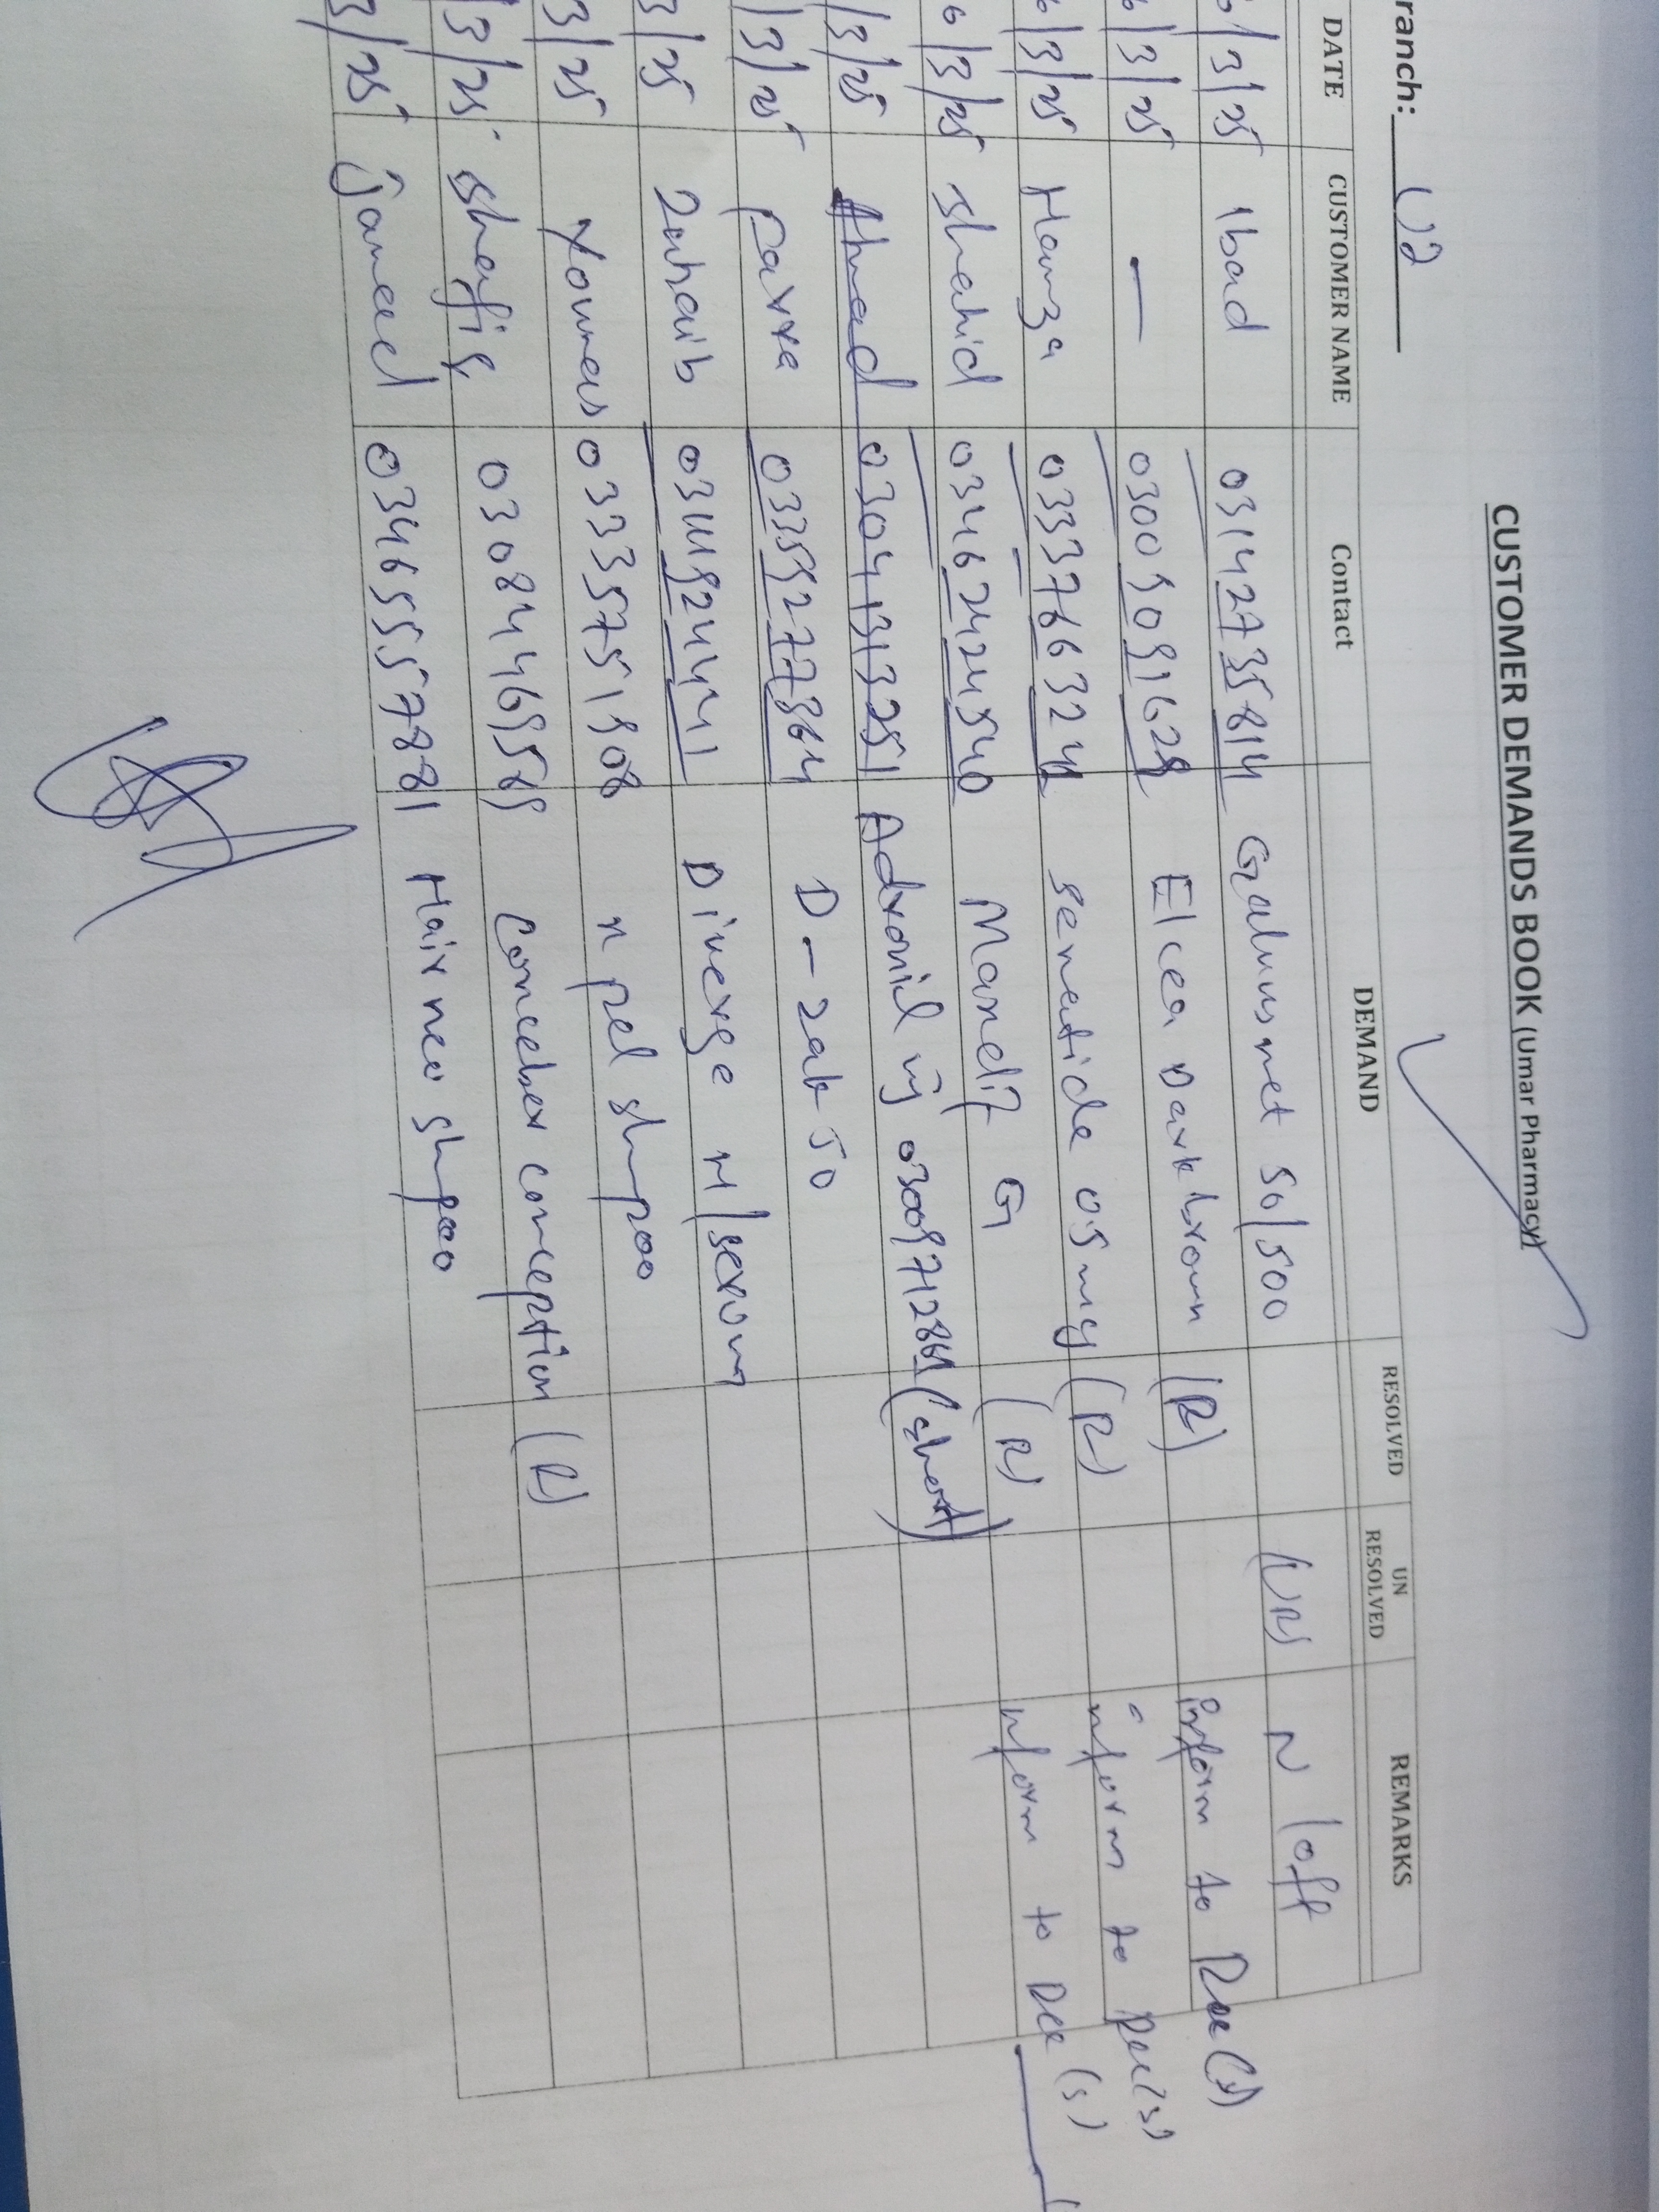 CUSTOMER DEMANDS BOOK (Umar Pharmacy)
ranch: U2
DATE CUSTOMER NAME Contact DEMAND RESOLVED UN RESOLVED REMARKS
6/3/25 Ibad 03142735814 Galvus met 50/500 (UR) N loft
6/3/25 — 03005091629 Elcea Dark brown (R) inform to Rae (S)
6/3/25 Hamza 03337663224 sematide 05 mg (R) inform to Rae (S)
6/3/25 Shahid 03462424540 Manelix G (R) inform to Rae (S)
/3/25 Ahmad 03041313251 Adronil inj 03009712861 (short)
/3/25 0335927773864 D-zak 50
3/25 Zuhaib 03119244441 Diverge H/serum
3/25 Younas 03335751908 n pel shmpoo
/3/25 Shafiq 03084469589 Conceber conception (R)
3/25 jameel 03465557881 Hair neo shmpoo